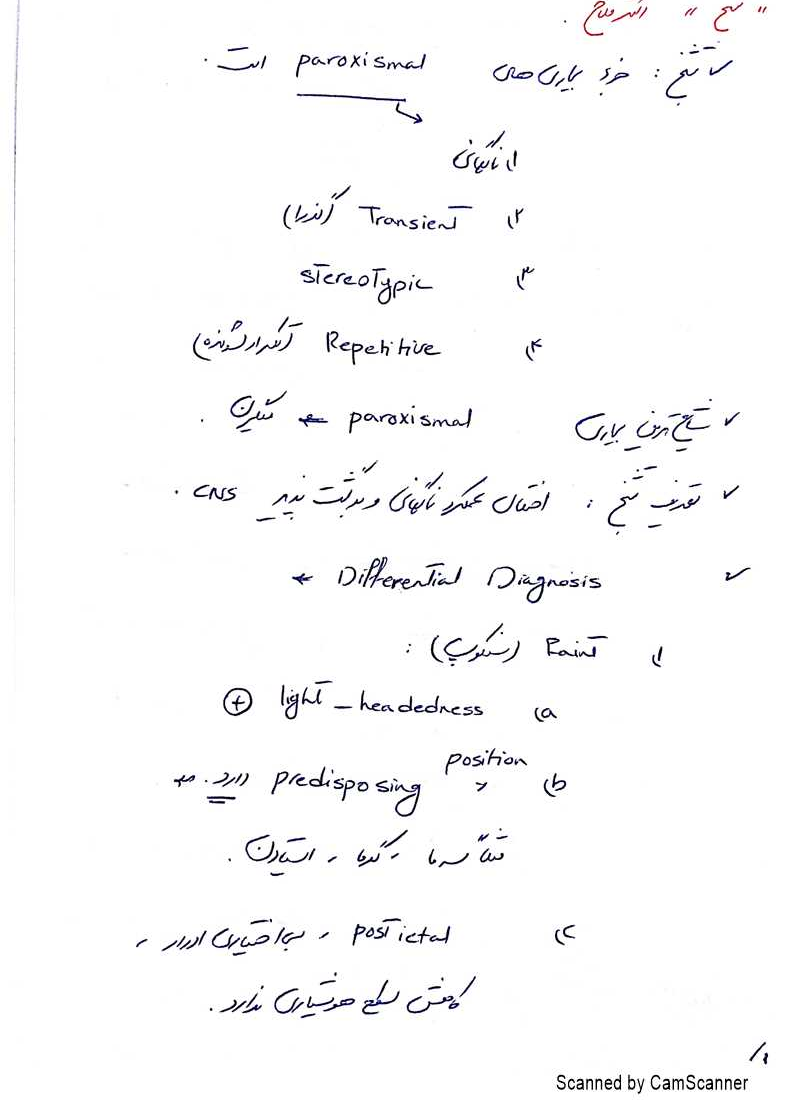 " تشنج " دکتر فلاح .
✓ تشنج : جزء بیماری‌های paroxismal است .
۱) ناگهانی
۲) Transient (گذرا)
۳) stereotypic
۴) Repetitive (تکرار شونده)
✓ شایع‌ترین بیماری paroxismal ← میگرن .
✓ تعریف تشنج : اختلال عملکرد ناگهانی و برگشت پذیر CNS .
✓ Differential Diagnosis ←
۱) Faint (سنکوپ) :
a) light - headedness ⊕
b) predisposing position دارد . ←
مثلاً سرما ، گرما ، ایستادن .
c) post ictal ، بی‌اختیاری ادرار ،
کاهش سطح هوشیاری ندارد .
۱/
Scanned by CamScanner